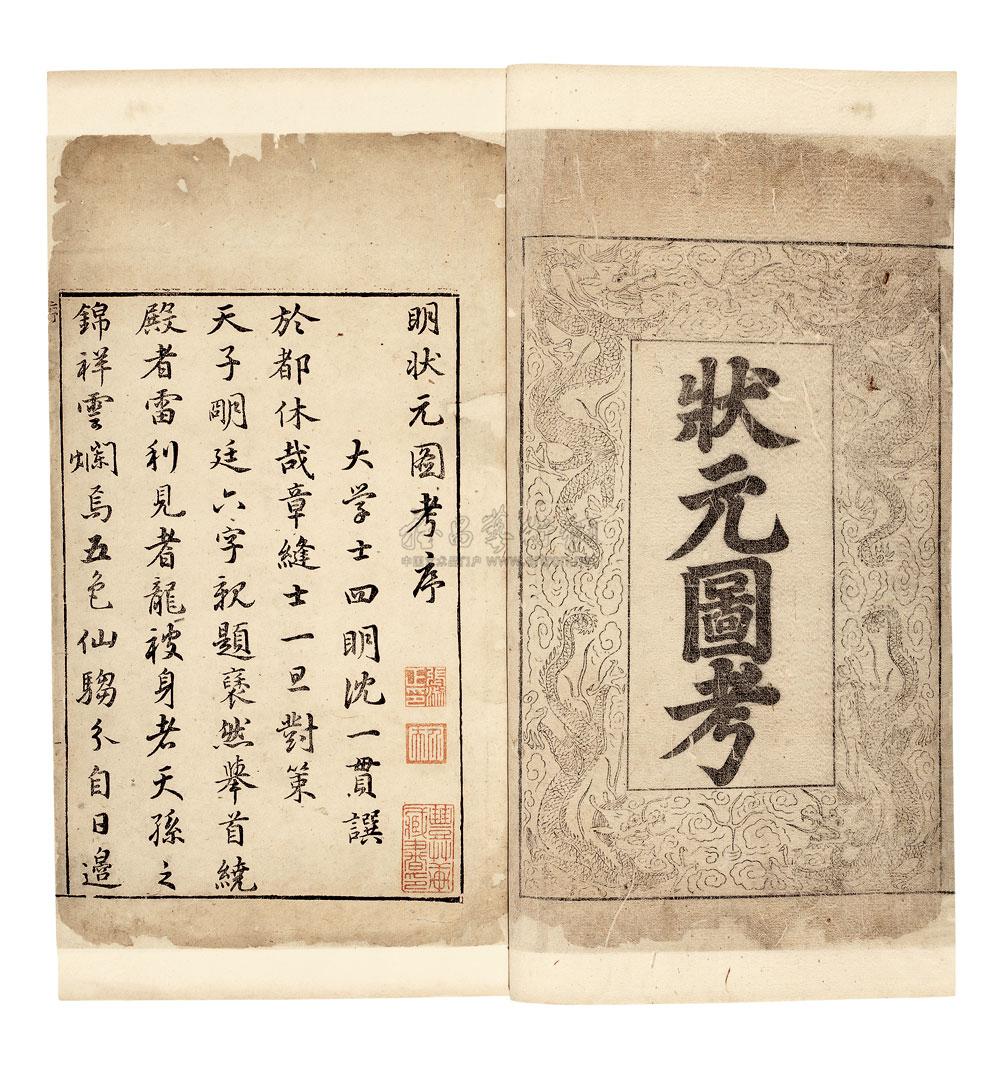 狀元圖考
明狀元圖考序
大学士四明沈一貫譔
於都休哉章縫士一旦對策
天子明廷六字親題褎然舉首繞
殿者雷利見者龍被身者天孫之
錦祥雲爛焉五色仙騶乆自日邉